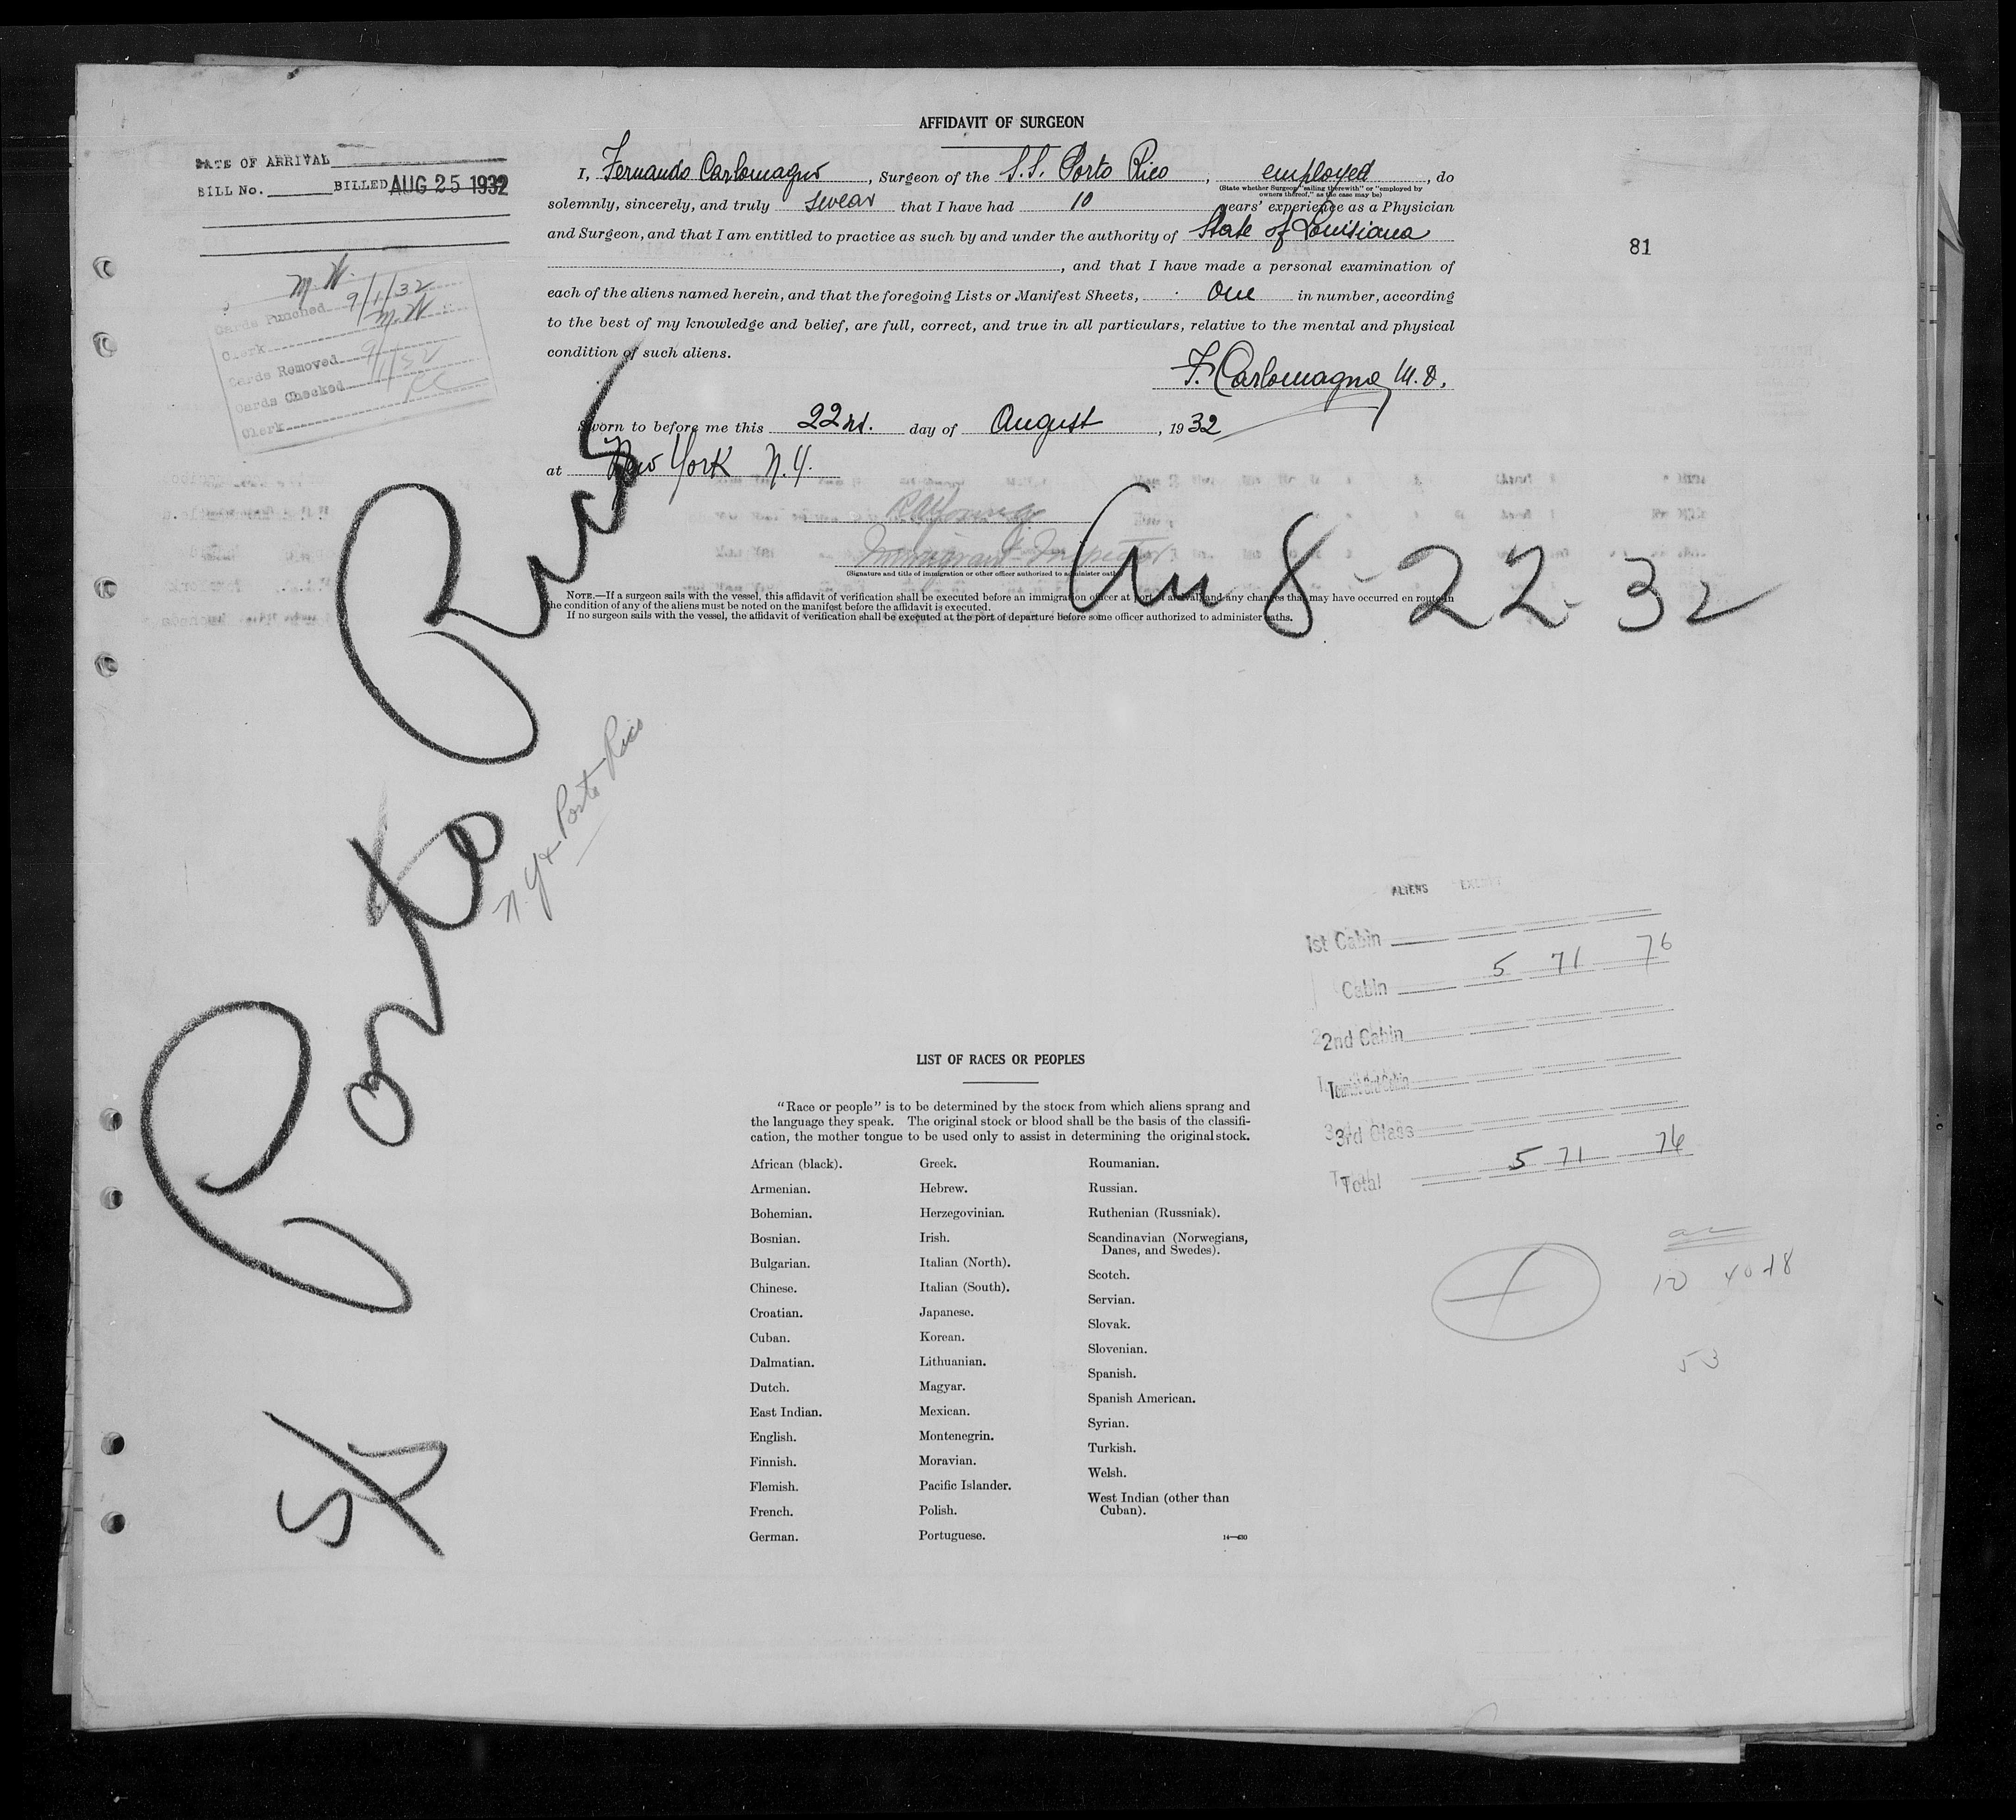 AFFIDAVIT OF SURGEON
DATE OF ARRIVAL
BILL No. BILLED AUG 25 1932
I, Fernando Carlomagno, Surgeon of the S.S. Porto Rico, employed, do
(State whether Surgeon "sailing therewith" or "employed by
owners thereof," as the case may be)
solemnly, sincerely, and truly swear that I have had 10 years' experience as a Physician
and Surgeon, and that I am entitled to practice as such by and under the authority of State of Louisiana
, and that I have made a personal examination of
each of the aliens named herein, and that the foregoing Lists or Manifest Sheets, one in number, according
to the best of my knowledge and belief, are full, correct, and true in all particulars, relative to the mental and physical
condition of such aliens.
F. Carlomagno, M.D.
Sworn to before me this 22nd. day of August, 1932
at New York N.Y.
RAYoung
Immigrant Inspector
(Signature and title of immigration or other officer authorized to administer oaths)
NOTE.—If a surgeon sails with the vessel, this affidavit of verification shall be executed before an immigration officer at port of arrival, and any changes that may have occurred en route in
the condition of any of the aliens must be noted on the manifest before the affidavit is executed.
If no surgeon sails with the vessel, the affidavit of verification shall be executed at the port of departure before some officer authorized to administer oaths.
81
M.W.
Cards Punched 9/1/32
Clerk M.W.
Cards Removed 9/1/32
Cards Checked
Clerk
S/S Porto Rico
N.Y & Porto Rico
8-22-32
ALIENS
1st Cabin
Cabin 5 71 76
2nd Cabin
Tourist 3rd Cabin
3rd Class
Total 5 71 76
10 40 18
53
LIST OF RACES OR PEOPLES
"Race or people" is to be determined by the stock from which aliens sprang and
the language they speak. The original stock or blood shall be the basis of the classifi-
cation, the mother tongue to be used only to assist in determining the original stock.
African (black).
Armenian.
Bohemian.
Bosnian.
Bulgarian.
Chinese.
Croatian.
Cuban.
Dalmatian.
Dutch.
East Indian.
English.
Finnish.
Flemish.
French.
German.
Greek.
Hebrew.
Herzegovinian.
Irish.
Italian (North).
Italian (South).
Japanese.
Korean.
Lithuanian.
Magyar.
Mexican.
Montenegrin.
Moravian.
Pacific Islander.
Polish.
Portuguese.
Roumanian.
Russian.
Ruthenian (Russniak).
Scandinavian (Norwegians,
Danes, and Swedes).
Scotch.
Servian.
Slovak.
Slovenian.
Spanish.
Spanish American.
Syrian.
Turkish.
Welsh.
West Indian (other than
Cuban).
14—430